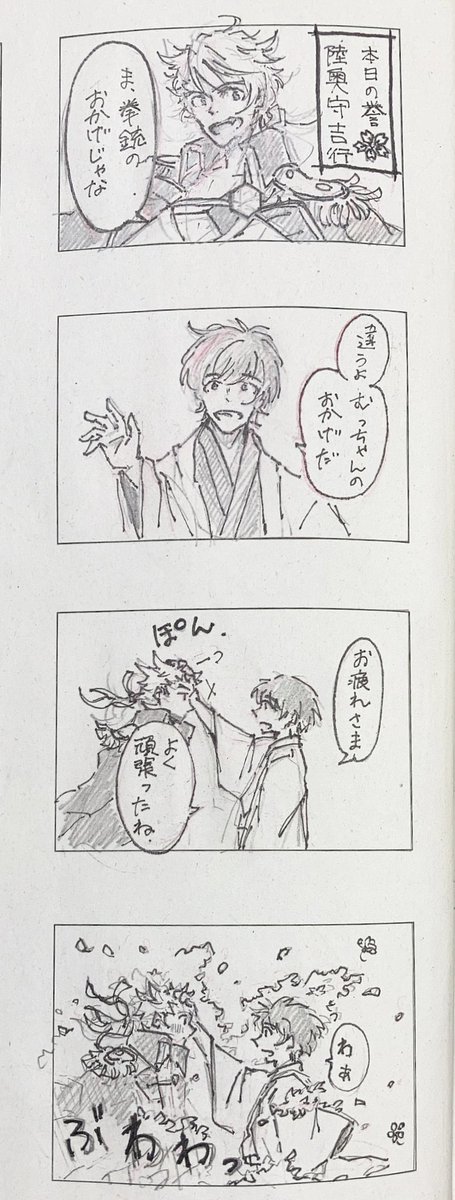 本日の誉
陸奥守吉行
ま、拳銃の
おかげじゃな
違うよ
むっちゃんの
おかげだ
ぽん.
お疲れさま
よく
頑張ったね.
わぁ
ぶわわっ